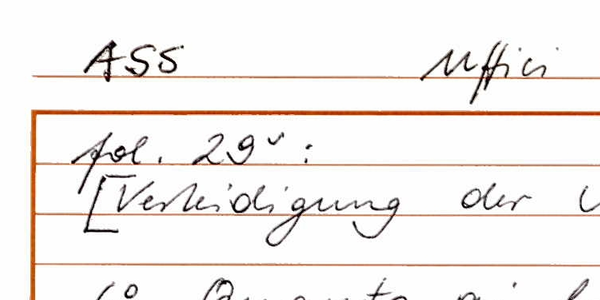 ASS Uffici
fol. 29v:
[Verteidigung der